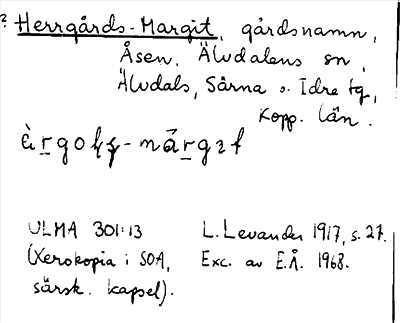 ? Herrgårds-Margit, gårdsnamn,
Åsen, Älvdalens sn,
Älvdals, Särna o. Idre tg,
Kopp. län.
ULMA 301:13
(Xerokopia i SOA,
särsk. kapsel).
L. Levander 1917, s. 27.
Exc. av E.Å. 1968.